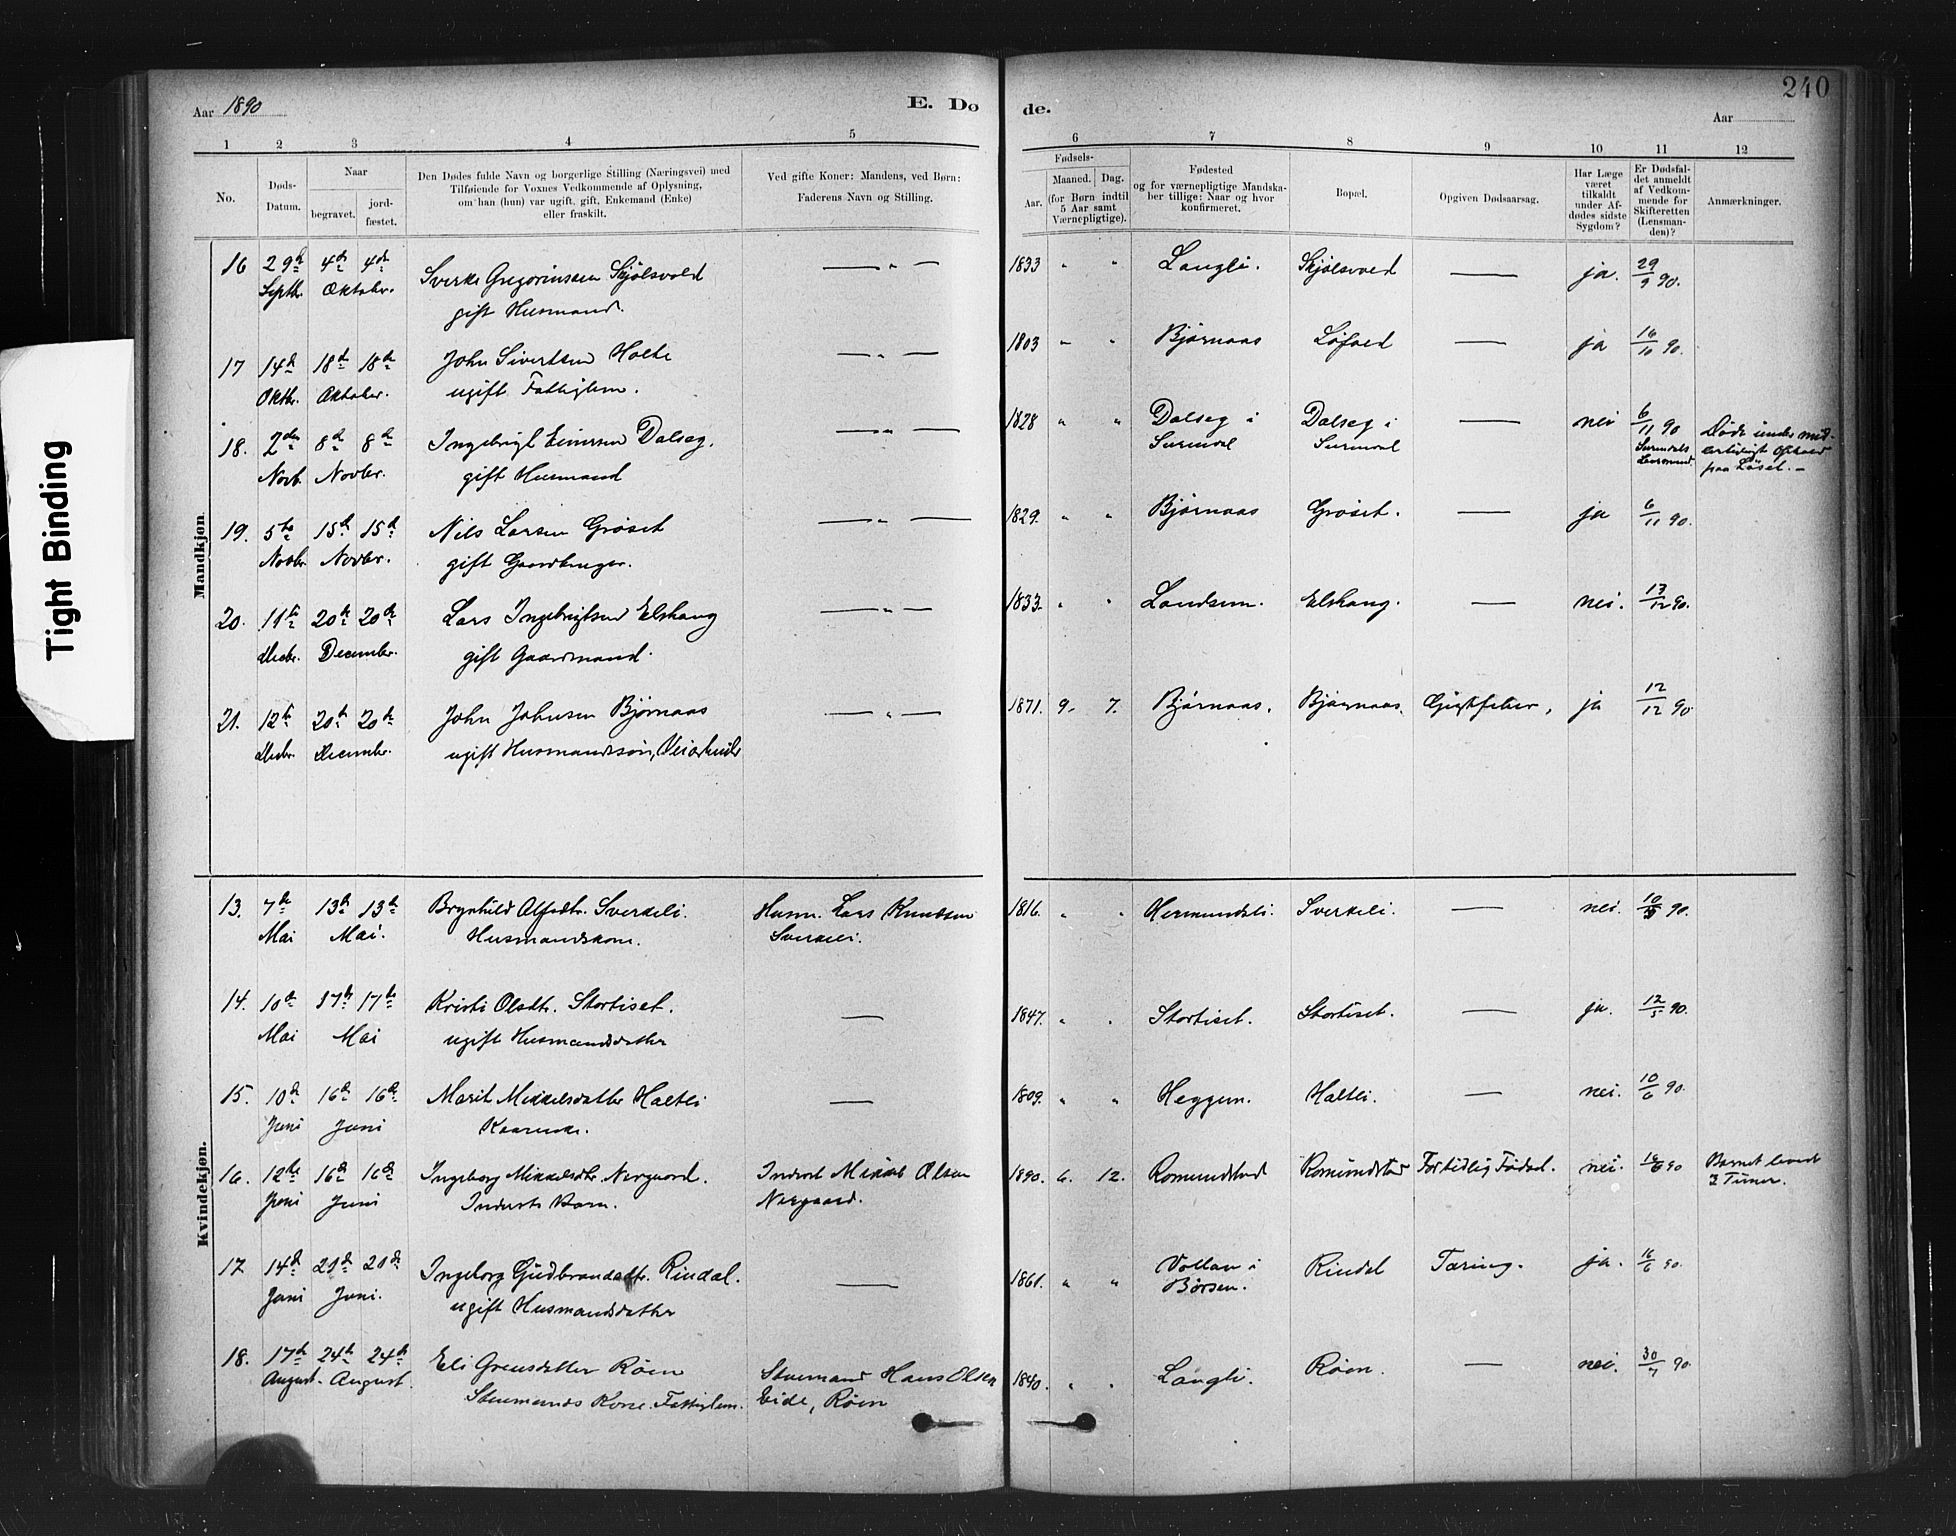 Tight Binding
240
Aar 1890
E. Dø
de.
Aar
1 2 3 4 5 6 7 8 9 10 11 12
No.
Døds-
Datum.
Naar
begravet.
jord-
fæstet.
Den Dødes fulde Navn og borgerlige Stilling (Næringsvei) med
Tilføiende for Voxnes Vedkommende af Oplysning,
om han (hun) var ugift, gift, Enkemand (Enke)
eller fraskilt.
Ved gifte Koner: Mandens, ved Børn:
Faderens Navn og Stilling.
Fødsels-
Aar.
Maaned. Dag.
(for Børn indtil
5 Aar samt
Værnepligtige).
Fødested
og for værnepligtige Mandska-
ber tillige: Naar og hvor
konfirmeret.
Bopæl.
Opgiven Dødsaarsag.
Har Læge
været
tilkaldt
under Af-
dødes sidste
Sygdom?
Er Dødsfal-
det anmeldt
af Vedkom-
mende for
Skifteretten
(Lensman-
den)?
Anmærkninger.
Mandkjøn
16 29de 4de 4de Sverke Gregoriussen Skjølsvold — " — 1833 " " Langli. Skjølsvold — ja. 29/9 90.
Septbr. Oktober. gift Husmand.
17 14de 18de 18de John Sivertsen Holte — " — 1803 " " Bjørnaas Løfald — ja 16/10 90.
Oktbr. Oktober. ugift Fattiglem.
18. 2den 8de 8de Ingebrigt Einersen Dalseg. — " — 1828 " " Dalseg i Dalseg i — nei 6/11 90 Døde under mid-
Novb. Novbr. gift Husmand Surendal Surendal Surendals Lensmand lertidigt Ophold
paa Løset. —
19. 5te 15de 15de Nils Larsen Grøset — " — 1829. " " Bjørnaas Grøset. — ja 6/11 90.
Novbr. Novbr. gift Gaardbruger.
20. 11te 20de 20de Lars Ingebrigtsen Elshaug — " — 1833. " " Landsem. Elshaug. — nei. 13/12 90.
Decbr. December. gift Gaardmand.
21. 12te 20de 20de John Johnsen Bjørnaas — " — 1871. 9. 7. Bjørnaas. Bjørnaas. Gigtfeber. ja 12/12 90
Decbr. December. ugift Husmandssøn, Veiarbeider
Kvindekjøn.
13. 7de 13de 13de Brynhild Alfsdtr. Sverkeli. Husm. Lars Knudsen 1816. " " Hermundsli. Sverkeli. — nei. 10/5 90.
Mai Mai. Husmandskone. Sverkeli.
14. 10de 17de 17de Kristi Olsdtr. Stortiset. — 1847. " " Stortiset. Stortiset. — ja. 12/5 90.
Mai Mai ugift Husmandsdatter
15. 10de 16de 16de Marit Mikkelsdatter Haltli — 1809. " " Heggem. Haltli. — nei. 10/6 90.
Juni Juni Kaarenke.
16. 12te 16de 16de Ingeborg Mikkelsdtr. Nergaard. Inderst Mikkel Olsen 1890. 6. 12. Romundstad Romundstad Fortidlig Fødsel. nei. 90 Barnet levede
Juni Juni Inderst Barn. Nergaard. 2 Timer.
17 14de 21de 21de Ingeborg Gudbrandsdtr. Rindal. — 1861. " " Vollan i Rindal Tæring. ja. 16/6 90.
Juni Juni. ugift Husmandsdatter Børsen.
18. 17de 24de 24de Eli Grensdatter Røen Stuemand Hans Olsen 1840. " " Langli. Røen. — nei. 30/7 90.
August. August. Stuemands Kone. Fattiglem. Eide, Røen